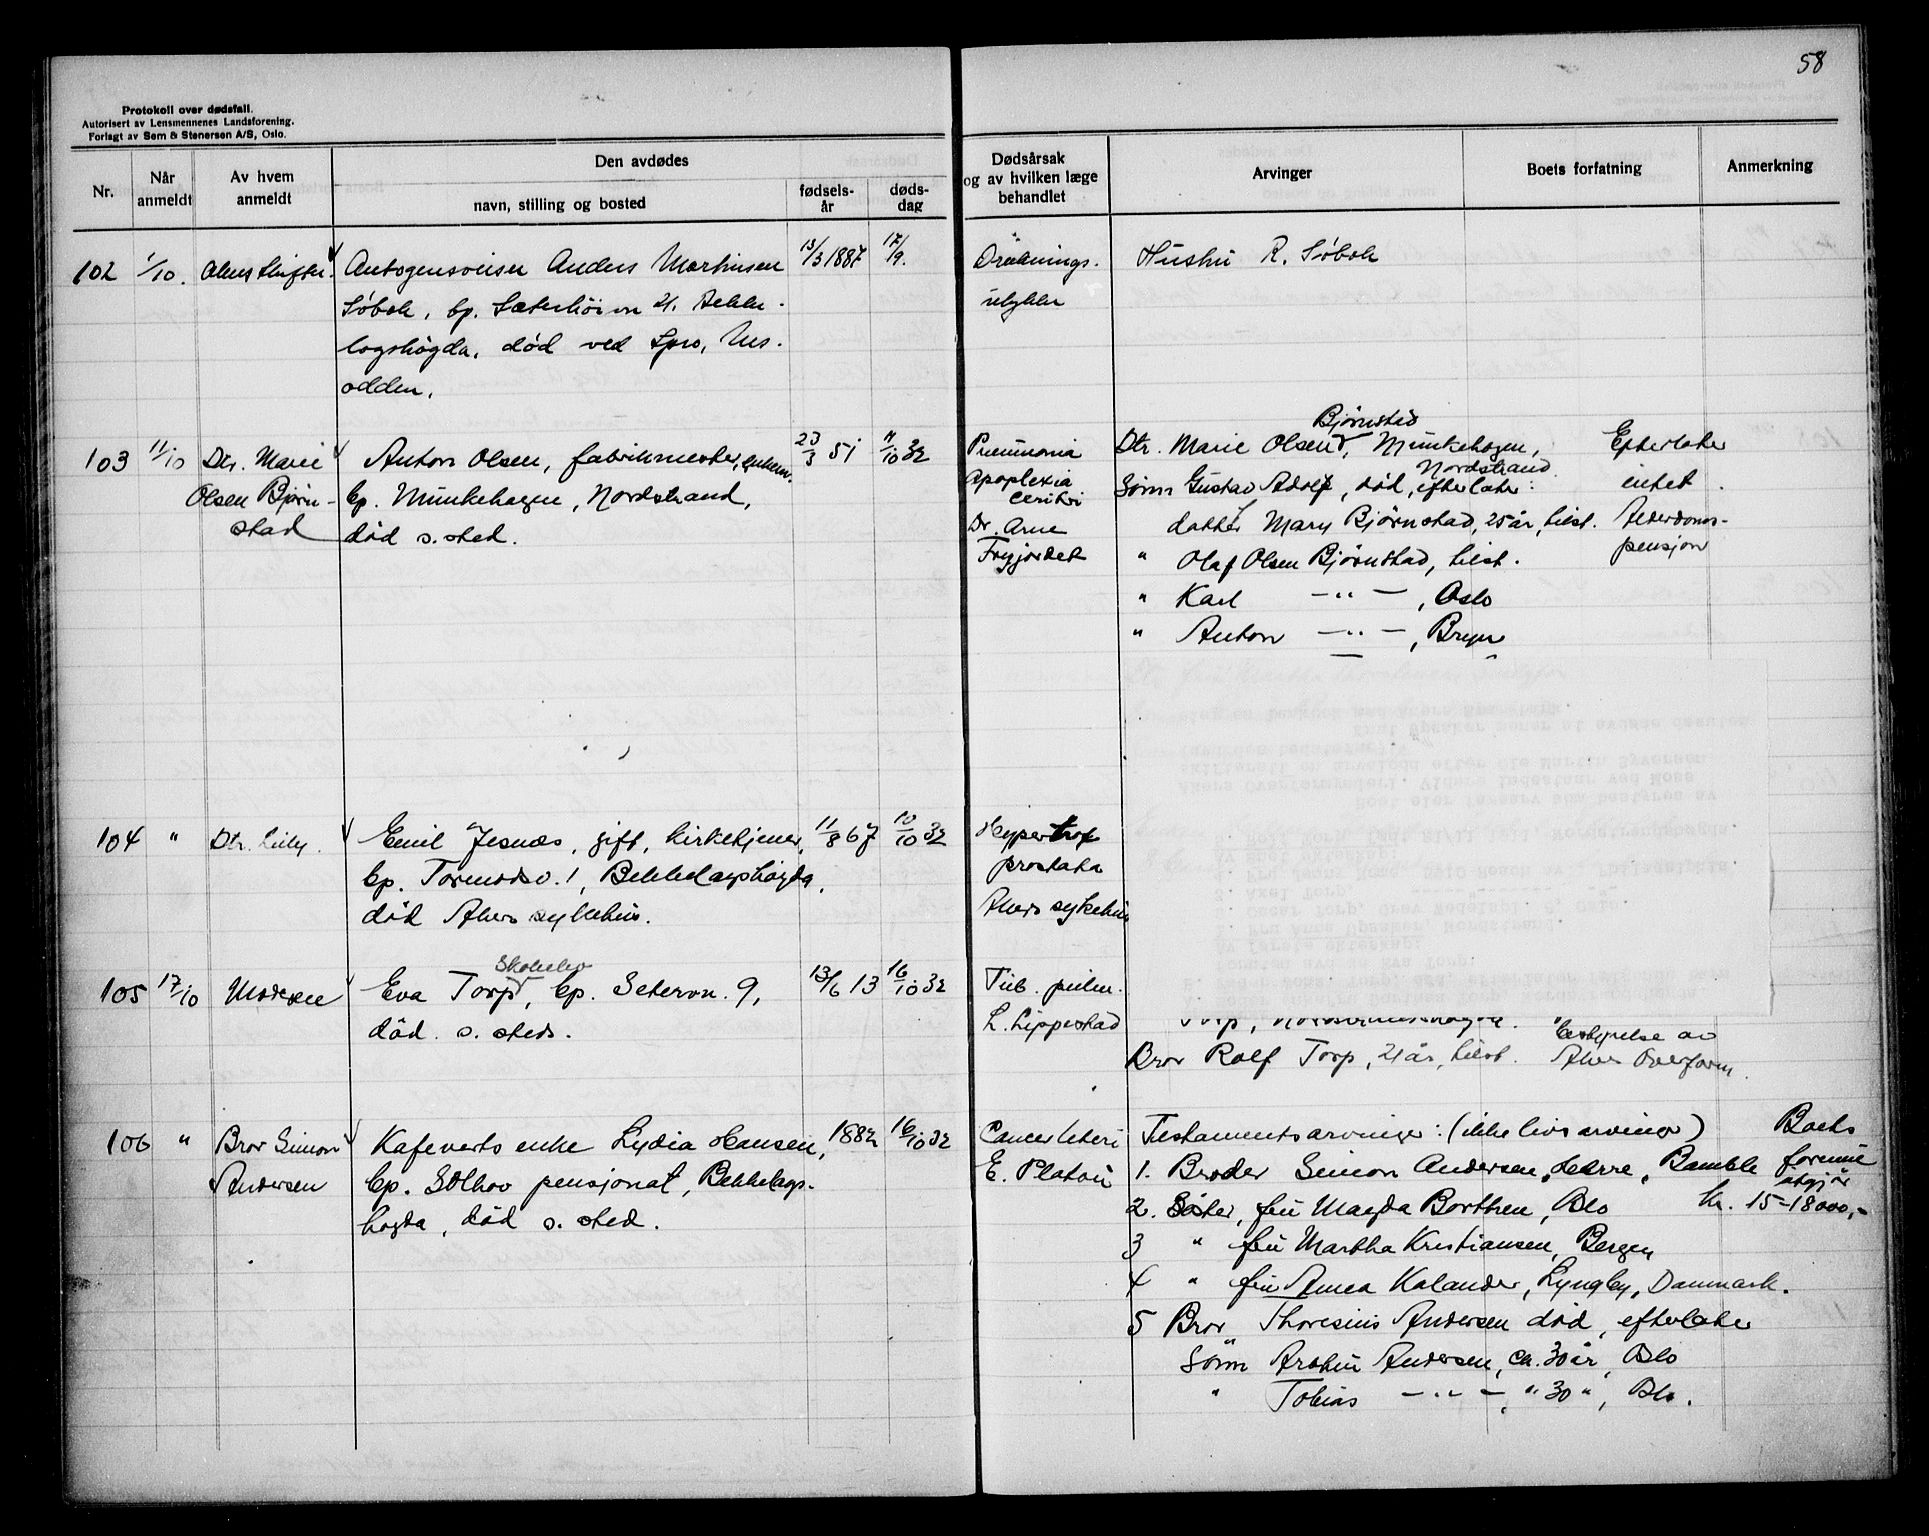 58
Protokoll over dødsfall.
Autorisert av Lensmennenes Landsforening.
Forlagt av Sem & Stenersen A/S, Oslo.
Nr.
Når anmeldt
Av hvem anmeldt
Den avdødes
navn, stilling og bosted
fødsels-år
døds-dag
Dødsårsak og av hvilken læge behandlet
Arvinger
Boets forfatning
Anmerkning
102 1/10. Akers skifter.
Autogensveiser Anders Martinsen
Søbok, bp. Sæterhöivn 21. Bekke-
lagshøgda, död ved Spro, Nes-
odden.
13/3 1887
17/9.
Druknings-
ulykke
Hustru R. Søbok
103 11/10 Dtr. Marie
Olsen Bjørn-
stad
Anton Olsen, fabrikmester, enkem.
bp. Munkehagen, Nordstrand,
död s. sted.
23/3 51
11/10 32
Pneumonia
Apoplexia
cerebri
Dr. Arne
Frøgjordet
Bjørnstad
Dtr. Marie Olsen, Munkehagen,
Nordstrand
Sønn Gustav Adolf, död, efterlater:
datter Mary Bjørnstad, 25 år, tilst.
" Olaf Olsen Bjørnstad, tilst.
" Karl — " — , Oslo
" Anton — " — , Bryn
Efterlater
intet.
Alderdoms-
pensjon
104 " Dtr. Lily.
Emil Jesnæs, gift, kirketjener,
bp. Tormodsv. 1, Bekkelagshøgda,
död Akers sykehus.
11/8 67
10/10 32
Hypertrof
prostata
Akers sykehus
105 17/10 Moderen
Skoleelev
Eva Torp, bp. Setervn. 9,
död. s. steds.
13/6 13
16/10 32
Tub. pulm.
L. Lippestad
Bror Rolf Torp, 21 år, tilst.
bestyrelse av
Akers Overform.
106 " Bror Simon
Andersen
Kafeverts enke Lydia Hansen,
bp. Solhov pensjonat, Bekkelags-
høgda, död s. sted.
1882
16/10 32
Cancer Uteri
E. Platou
Testamentsarvinger: (ikke livsarvinger)
1. Broder Simon Andersen, Herre, Bamble
2. Söster, fru Magda Borthen, Oslo
3 " fru Martha Kristiansen, Bergen
4 " fru Anna Kalander, Lyngby, Danmark.
5 Bror, Thoresius Andersen död, efterlater
Sønn Andersen, ca. 30 år, Oslo
" Tobias — " — , " 30 ", Oslo.
Boets
formue
utgjør
kr. 15-18000,-